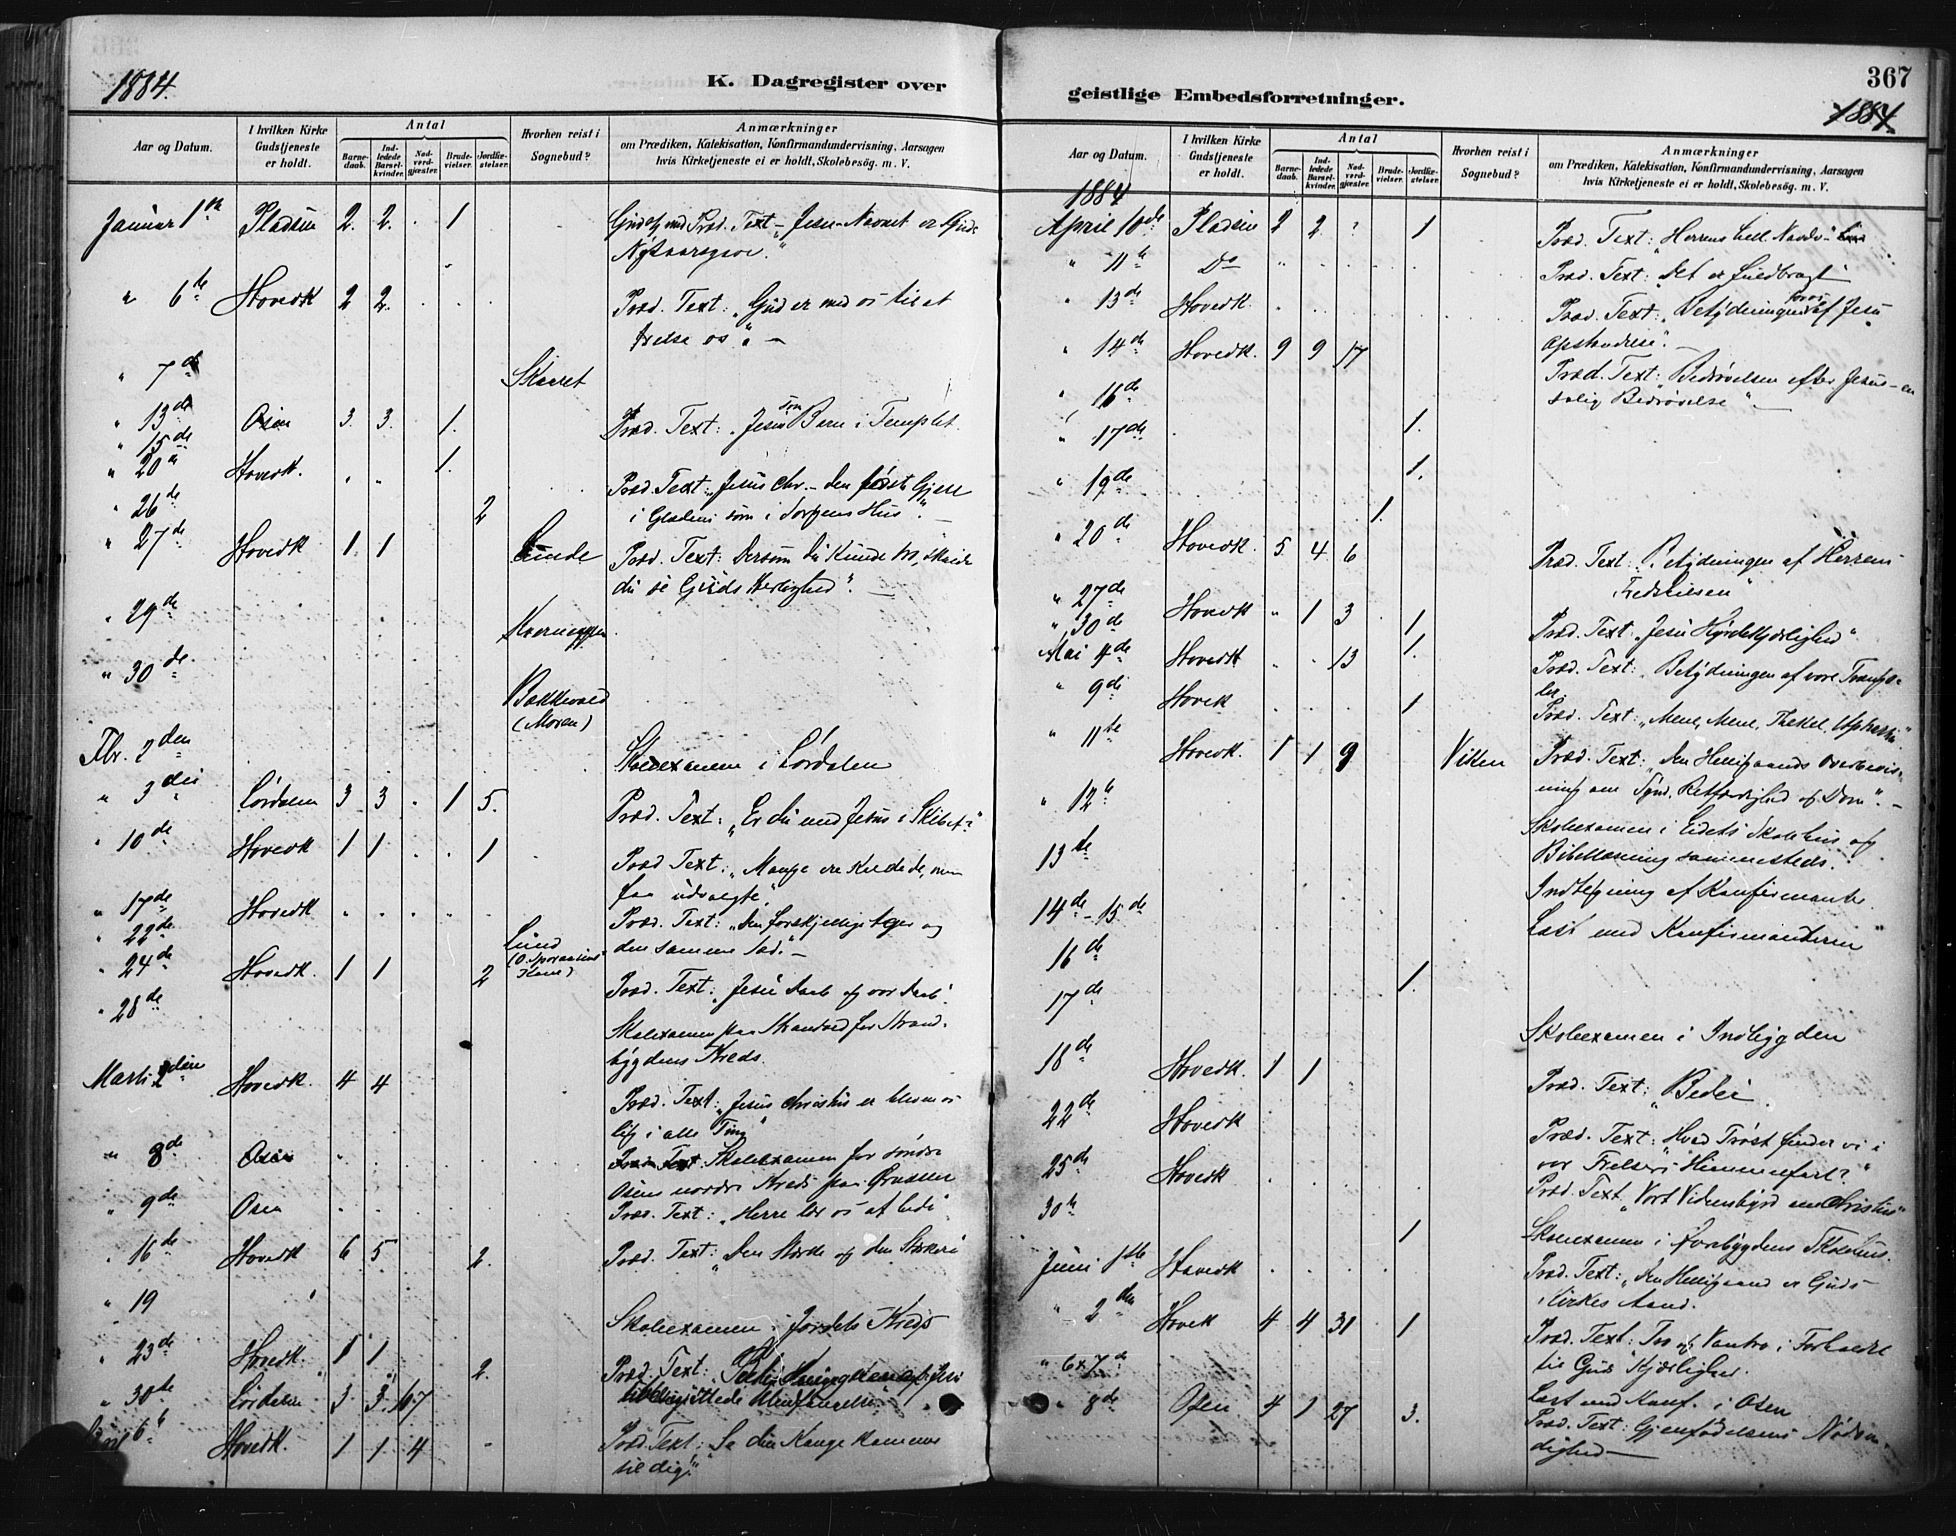 1884.
K. Dagregister over
Aar og Datum.
I hvilken Kirke Gudstjeneste er holdt.
Antal
Barnedaab.
Indledede Barselkvinder.
Nadverdgjæster.
Brudevielser.
Jordfæstelser.
Hvorhen reist i Sognebud?
Anmærkninger
om Prædiken, Katekisation, Konfirmandundervisning, Aarsagen
hvis Kirketjeneste ei er holdt, Skolebesøg. m. V.
Januar 1ste Pladsen 2. 2. . 1 Text Jesu Navnet er Guds
Nytaarsgave."
" 6te Hovedk 2 2. Præd. Text: "Gud er med os til at
frelse os". —
" 7de Skaaret
" 13de Osen 3. 3. 1. Præd. Text: "Jesus som Barn i Templet.
" 15de 1.
" 20de Hovedk. Præd. Text: "Jesus Chr. - den første Gjest
i Glædens som i Sorgens Hus".
" 26de 2
" 27de Hovedk 1. 1 Lunde Præd. Text: Dersom du kunde tro, skulde
du se Guds Herlighed".
" 29de
" 30de Bakkevold
(Moren)
Fbr. 2den Skoleexamen i Lørdalen
" 3die Lørdalen 3 3 . 1 5. Præd. Text: "Er du med Jesus i Skibet?"
" 10de Hovedk 1 1 1 Præd Text: "Mange ere kaldede, men
faa udvalgte."
" 17de Hovedk Præd. Text: "Den forskjellige Ager og
den samme Sæd." —
" 22de Lund
" 24de Hovedk. 1 1 2 Præd. Text: "Jesu Daab og vor Daab".
" 28de Skoleexamen paa Strandved for Strand-
bygdens Kreds.
Marts 2den Hovedk. 4 4 Præd. Text: "Jesus Christus er bleven os
lig i alle Ting"
" 8de Osen Skoleexamen for søndre
Osens nordre Kreds paa
" 9de Osen Præd. Text: "Herre lær os at bede"
" 16de Hovedk 6 5 2. Præd. Text: "Den Stærke og den Stærkere
" 19 Skoleexamen i Jordets Kreds
" 23de Hovedk. 1 1 2. Præd. Text:
" 30te Lørdalen 3. 3. 67
April 6te Hovedk. 1 1 4 Præd Text: Se din Konge kommer
til dig!"
geistlige Embedsforretninger.
367
1884.
Aar og Datum.
I hvilken Kirke Gudstjeneste er holdt.
Antal
Barnedaab.
Indledede Barselkvinder.
Nadverdgjæster.
Brudevielser.
Jordfæstelser.
Hvorhen reist i Sognebud?
Anmærkninger
om Prædiken, Katekisation, Konfirmandundervisning, Aarsagen
hvis Kirketjeneste ei er holdt, Skolebesøg. m. V.
1884
April 10de Pladsen 2 2 1 Præd. Text: "Herrens hell. Nadv."
" 11te Do Præd. Text: "Det er fuldbragt
" 13de Hovedk. Præd. Text: "Betydningen for os af Jesu
Opstandelse".
" 14de Hovedk. 9 9 17 Præd. Text: "Bedrøvelsen efter Jesus - en
salig Bedrøvelse"
" 16de
" 17de 1.
" 19de 1.
" 20de Hovedk. 5 4 6 1. Præd. Text: "Betydningen af Herrens
Fredshilsen"
" 27de Hovedk " 1 3 1 Præd. Text "Jesu Hyrdekjærlighed"
" 30de 1.
Mai 4de Hovedk 13 Præd. Text: "Betydningen af vore Trængs-
ler.
" 9de Hovedk 1 Præd. Text: "Mene, Mene, Thekel, Upharsin".
" 11te Hovedk. 1 1 9 Præd. Text: "Den Helligaands Overbevis-
ning om Synd, Retfærdighed og Dom". —
" 12te Skoleexamen i Eidets Skolehus og
Bibellæsning sammesteds.
13de Indtegning af Konfirmanter
14de - 15de Læst med Konfirmanterne
16de 1
17de Skoleexamen i Indbygden
18de Hovedk. 1 1 Præd. Text: "Beder
22de Hovedk Præd. Text: "Hvad Trøst finder vi i
vor Frelsers Himmelfart?"
25de Hovedk Præd. Text "Vort Vidnesbyrd om Christus"
30te 1 Skoleexamen i Øvrebygdens Skolehus.
Juni 1ste Hovedk Præd. Text: "Den Helligaand er Guds
Kirkes Aand.
" 2den Hovedk 4 4 31 1 Præd. Text: Tro og Vantro i Forhold
til Guds Kjærlighed.
" 6 & 7de Læst med Konf. i Osen
" 8de Osen 4 1 27 3. Præd. Text: Gjenfødelsens Nødven-
dighed —